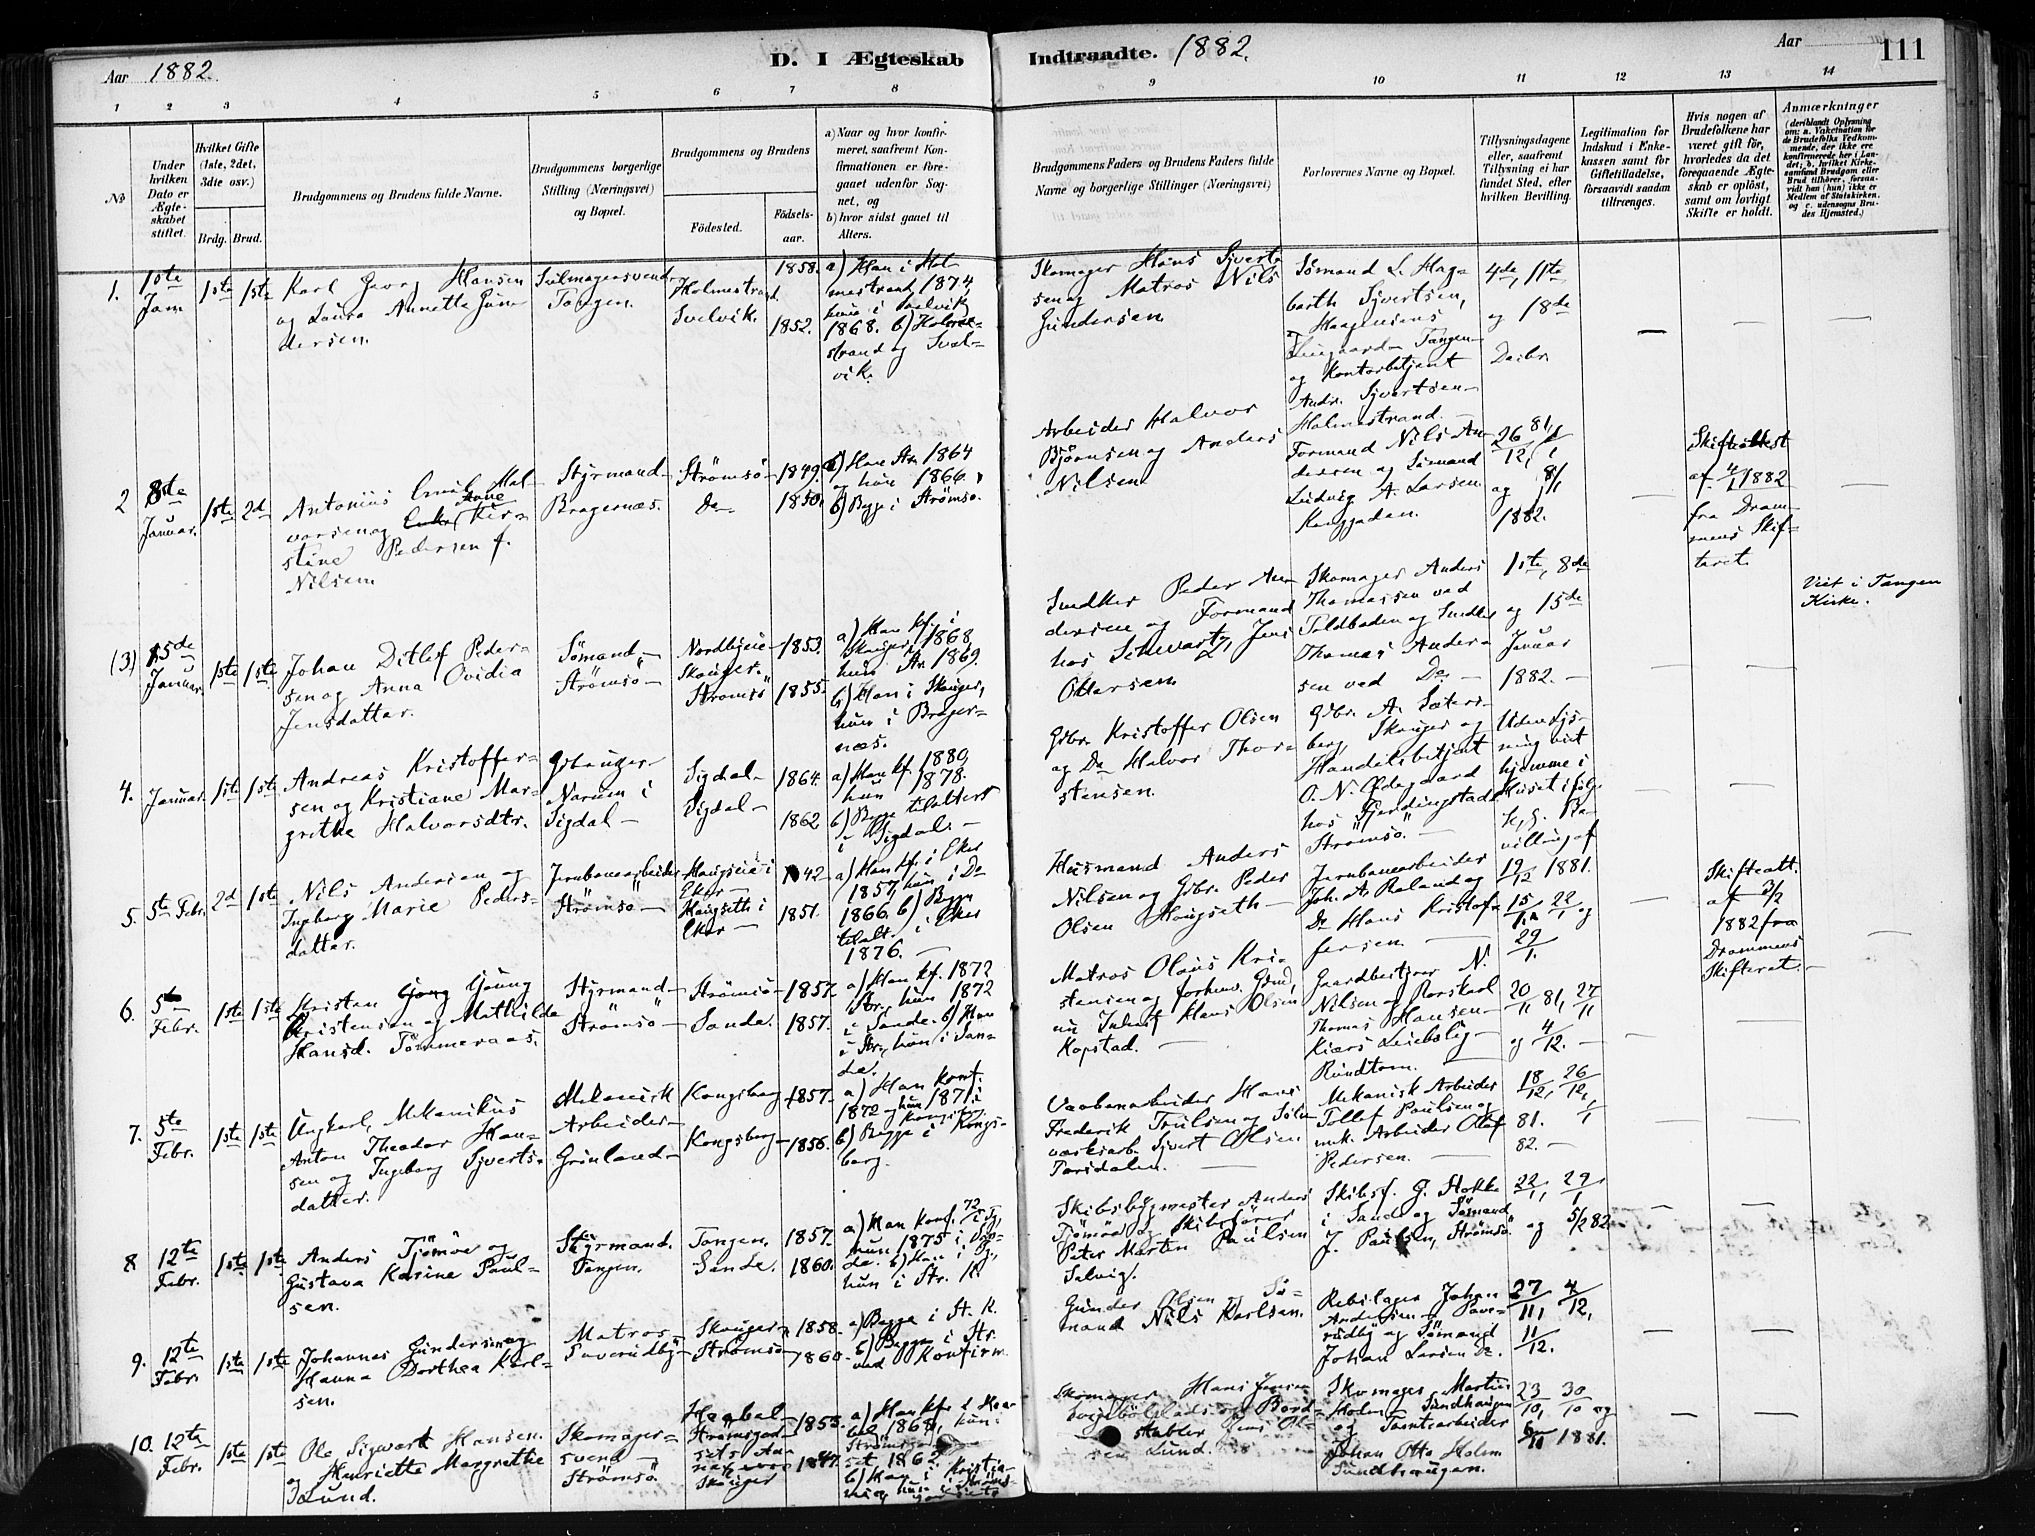 Aar 1882.
D. I Ægteskab
Indtraadte. 1882.
Aar
111
1 2 3 4 5 6 7 8 9 10 11 12 13 14
No
Under
hvilken
Dato er
Ægte-
skabet
stiftet.
Hvilket Gifte
(1ste, 2det,
3die osv.)
Brdg. Brud.
Brudgommens og Brudens fulde Navne.
Brudgommens borgerlige
Stilling (Næringsvei)
og Bopæl.
Brudgommens og Brudens
Fødested.
Fødsels-
aar.
a) Naar og hvor konfir-
meret, saafremt Kon-
firmationen er fore-
gaaet udenfor Sog-
net, og
b) hvor sidst gaaet til
Alters.
Brudgommens Faders og Brudens Faders fulde
Navne og borgerlige Stillinger (Næringsvei)
Forlovernes Navne og Bopæl.
Tillysningsdagene
eller, saafremt
Tillysning ei har
fundet Sted, efter
hvilken Bevilling.
Legitimation for
Indskud i Enke-
kassen samt for
Giftetilladelse,
forsaavidt saadan
tiltrænges.
Hvis nogen af
Brudefolkene har
været gift før,
hvorledes da det
foregaaende Ægte-
skab er opløst,
samt om lovligt
Skifte er holdt.
Anmærkninger
(deriblandt Oplysning
om: a. Vakcination for
de Brudefolks Vedkom-
mende, der ikke ere
konfirmerede her i Lan-
det; b. hvilket Kirke-
samfund Brudgom eller
Brud tilhører, forsaa-
vidt han (hun) ikke er
Medlem af Statskirken,
og c. udensogns Bru-
des Hjemsted.)
1.
1ste
Jan
1ste 1ste
Karl Georg Hansen
og Laura Annette Gun-
dersen.
Tangen.
Holmestrand
Svelvik.
1858.
1852.
a) Han i Hol-
mestrand 1874,
hun i Svelvik
1868. b) Holme-
strand og Svel-
vik.
Skomager Hans Syvert-
sen og Matros Nils
Gundersen
Sømand L. Hag-
barth Syvertsen,
Tangen
og Kontorbetjent
Andr. Syvertsen
Holmestrand.
4de, 11te
og 18de
Decbr.
2
8de
Januar.
1ste 2d
Antonius Emil Hal-
vorsen og Enke Anne Kir-
stine Pedersen f.
Nilsen
Styrmand
Bragernæs.
Strömsö
Do
1849.
1850.
a) Han Str. 1864
og hun 1866.
b) Begge i Strömsö.
Arbeider Halvor
Bjørnsen og Anders
Nilsen
Formand Nils An-
dersen og Sømand
Ludvig A. Larsen
26/12 81, 1/1
og 8/1
1882.
Skifteattest
af 4/1 1882
fra Dram-
mens Skif-
teret.
(3)
15de
Januar.
1ste 1ste
Johan Ditlef Peder-
sen og Anna Ovidia
Jensdatter.
Sömand
Strömsö
Nordbyeie
Skouger.
Strömsö
1853.
1855.
a) Han kf. i
Skouger 1868,
hun Str. 1869.
b) Han i Skouger,
hun i Brager-
næs.
Snedker Peder An-
dersen og Formand
hos Schwartz, Jens
Ottersen
Skomager Anders
Thomassen ved
Toldboden og Snedker
Thomas Ander-
sen ved Do
1ste, 8de
og 15de
Januar
1882.
Viet i Tangen
Kirke.
4.
Januar.
1ste 1ste
Andreas Kristoffer-
sen og Kristiane Mar-
grethe Halvorsdtr.
Gbruger
Narum i
Sigdal
Sigdal
Sigdal
1864.
1862
a) Han kf. 1880,
hun 1878.
b) Begge tilalters
i Sigdal.
Gbr. Kristoffer Olsen
og Do Halvor Thor-
stensen
Gbr. A. Sæters-
berg, Skouger og
Handelsbetjent
O. N. Ødegaard
hos Gjerdingstad
Strömsö.
Uden lys-
ning viet
hjemme i
Huset ifölge
kgl. Be-
villing af
19/12 1881.
5.
5te Febr.
2d 1ste
Nils Andersen og
Ingeborg Marie Peders-
datter.
Jernbanearbeider
Strömsö
Haugseie i
Eker
Haugseth i
Eker
1842
1851.
a) Han kf. i Eker
1857, hun i Do
1866. b) Begge
tilalt. i Eker
1876.
Husmand Anders
Nilsen og Gbr. Peder
Olsen Haugseth
Jernbanearbeider
Joh. A. Roland og
Do Hans Kristof-
fersen
15/1, 22/1 og
29/1.
Skifteatt.
af 3/2
1882 fra
Drammens
Skifteret.
6.
5te
Febr.
1ste 1ste
Kristian Georg Young
Kristensen og Mathilde
Hansd. Tömmeraas.
Styrmand
Strömsö
Strömsö
Sande.
1857.
1857.
a) Han kf. 1872
Str., hun 1872
i Sande. b) Han
i Str., hun i San-
de.
Matros Olaus Kri-
stensen og forhenv. Gmd,
nu Inderst Hans Olsen
Kopstad.
Gaardbestyrer N.
Nilsen og Rorskarl
Thomas Hansen
Rundtom.
20/11 81, 27/11
og 4/12.
7.
5te
Febr.
1ste 1ste
Ungkarl, Mekanikus
Anton Theodor Han-
sen og Ingeborg Syverts-
datter.
Mekanisk
Arbeider
Grönland
Kongsberg
Kongsberg
1857.
1856.
a) Han konf.
1872 og hun 1871 i
Kongsb.
b) Begge i Kongs-
berg.
Vaabenarbeider Hans
Frederik Trulsen og Sölv-
værksarb. Syvert Olsen
Mekanisk Arbeider
Tollef Paulsen og
mek. Arbeider Olaf
Pedersen.
18/12, 26/12,
81. 1/1
82.
8
12te
Febr.
1ste 1ste
Anders Tjömöe og
Gustava Karine Paul-
sen.
Styrmand.
Tangen.
Tangen.
Sande.
1857.
1860.
a) Han konf. 72 i Tg,
hun 1875 i San-
de. b) Han i Tg,
hun i Str. K.
Skibsbygmester Anders
Tjömöe og Skibsförer
Peter Martin Paulsen
Selvig.
Skibsf. G. Stokke
i Sand og Sömand
J. Paulsen, Strömsö.
22/1, 29/1
og 5/2 82
9.
12te
Febr.
1ste 1ste
Johannes Gundersen og
Hanna Dorthea Karl-
sen.
Matros
Skouger
Strömsö
1858.
1860.
a) Begge i St. K.
b) Begge i Str.
ved Konfirm.
Gunder Olsen og Sö-
mand Nils Karlsen.
Rebslager Johan
Andersen
og Sömand
Johan Larsen Do.
27/11, 4/12,
11/12.
10.
12te
Febr.
1ste 1ste
Ole Sigwart Hansen
og Henriette Margrethe
Lund.
Skomager-
svend
Strömsö
Skouger
1855.
1847.
a) Han kf. i
1868, hun i
1862
b) Han i Kristia-
nia, hun i Ströms-
Skomager Hans Jensen
og Bord-
stabler Jens Ol-
sen Lund.
Skomager Martin
Holm Sundhaugen
og Tomtearbeider
Johan Otto Holm
Sundhaugen.
23/10, 30/10 og
6/11 1881.